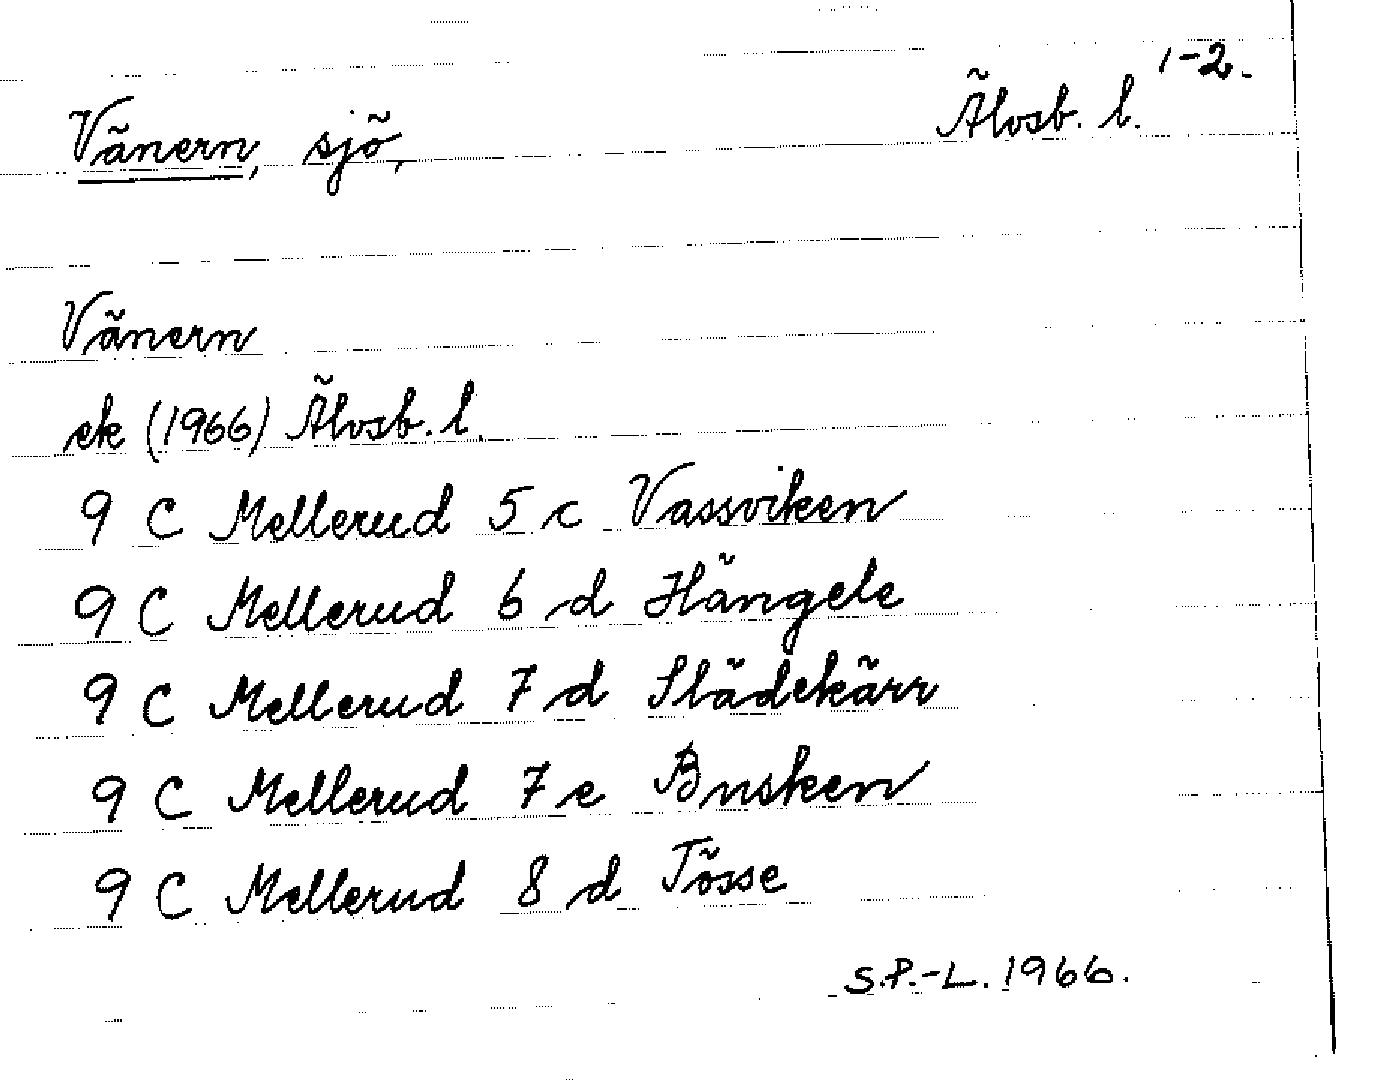 1-2.
Vänern, sjö, Älvsb. l.
Vänern
ek (1966) Älvsb. l.
9 C Mellerud 5 c Vassviken
9 C Mellerud 6 d Hängele
9 C Mellerud 7 d Slädekärr
9 C Mellerud 7 e Bnsken
9 C Mellerud 8 d Tösse
S.P.-L. 1966.